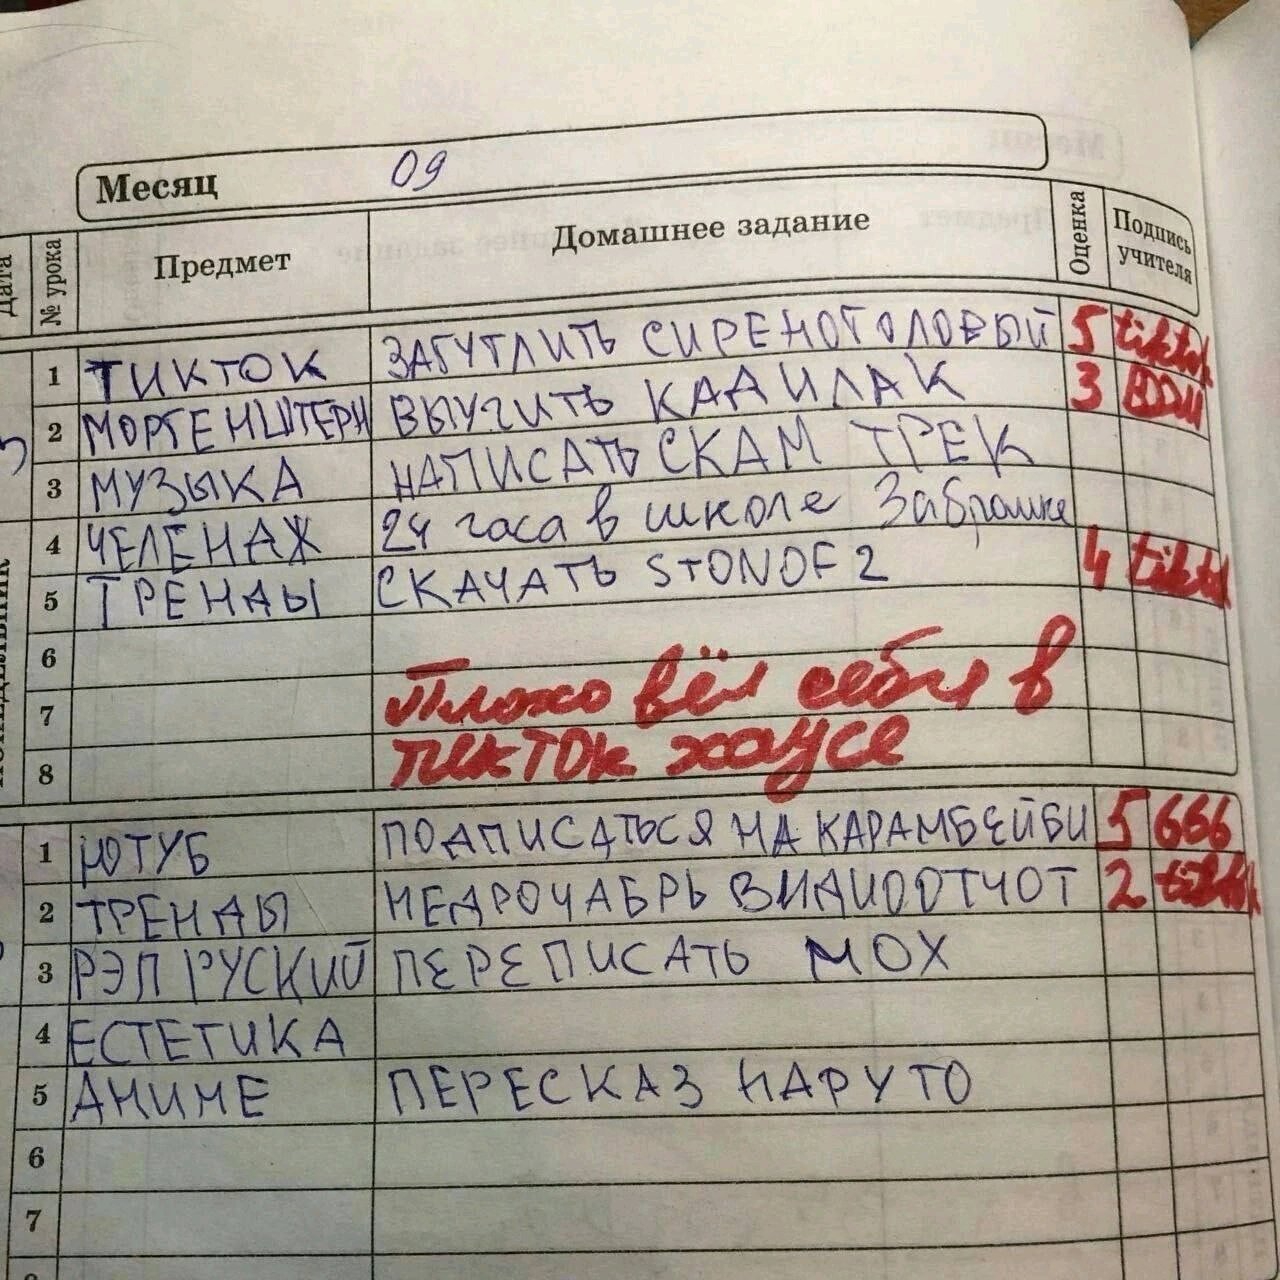 Месяц 09
Дата № урока Предмет Домашнее задание Оценка Подпись учителя
1 ТИКТОК ЗАГУГЛИТЬ СИРЕНОГОЛОВЫЙ 5 tiktok
2 МОРГЕНШТЕРН ВЫУЧИТЬ КАДИЛАК 3
3 МУЗЫКА НАПИСАТЬ СКАМ ТРЕК
4 ЧЕЛЕНДЖ 24 часа в школе Заброшке
5 ТРЕНДЫ СКАЧАТЬ STONOF 2 4 tiktok
ПОНЕДЕЛЬНИК
6
7 Плохо вёл себя в
8 тик ток хаусе
1 ЮТУБ ПОДПИСАТЬСЯ НА КАРАМБЕЙБИ 5 666
2 ТРЕНДЫ НЕДРОЧАБРЬ ВИДИООТЧОТ 2 tiktok
3 РЭП РУСКИЙ ПЕРЕПИСАТЬ МОХ
4 ЕСТЕТИКА
5 АНИМЕ ПЕРЕСКАЗ НАРУТО
6
7
8